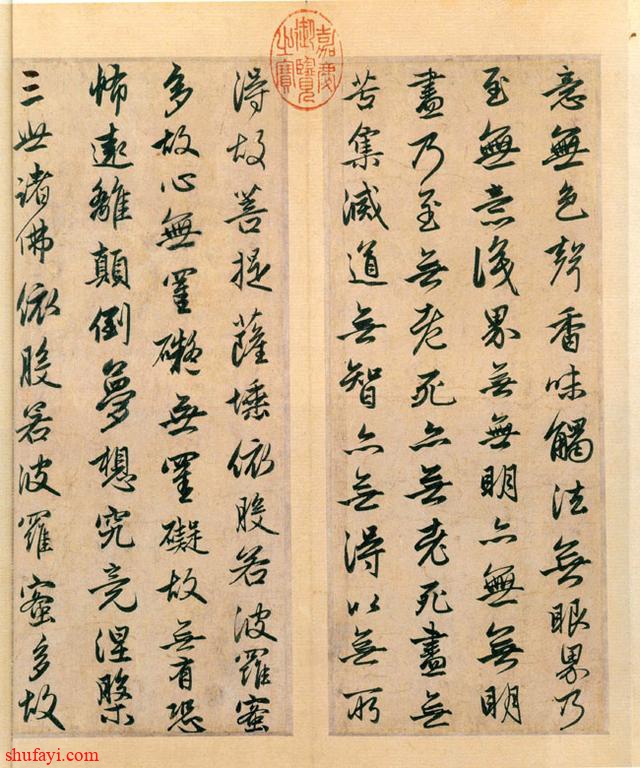 意無色聲香味觸法無眼界乃
至無意識界無無明亦無無明
盡乃至無老死亦無老死盡無
苦集滅道無智亦無得以無所
得故菩提薩埵依般若波羅蜜
多故心無罣礙無罣礙故無有恐
怖遠離顛倒夢想究竟涅槃
三世諸佛依般若波羅蜜多故
嘉慶御覽之寶
shufayi.com